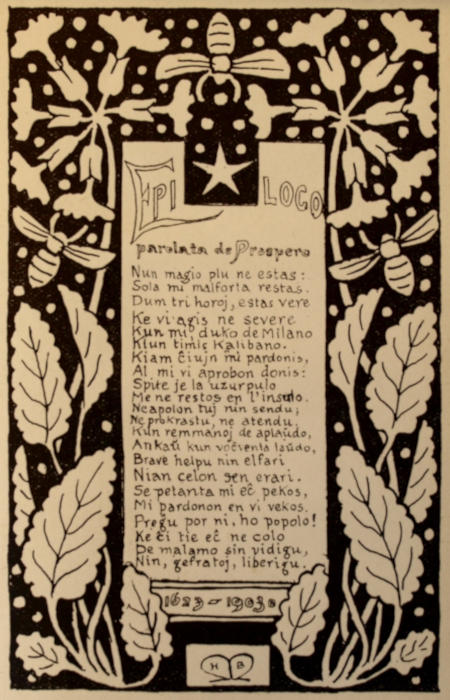 EPI LOGO
parolata de Prospero
Nun magio plu ne estas:
Sola mi malforta restas.
Dum tri horoj, estas vere
Ke vi agis ne severe
Kun mi, duko de Milano
Kiun timis Kalibano.
Kiam ĉiujn mi pardonis,
Al mi vi aprobon donis:
Spite je la uzurpulo
Me ne restos en l'insulo.
Neapolon tuj nun sendu;
Ne prokrastu, ne atendu,
Kun remmanoj de aplaŭdo,
Ankaŭ kun voĉventa laŭdo,
Brave helpu nin elfari
Nian celon sen erari.
Se petanta mi eĉ pekos,
Mi pardonon en vi vekos.
Pregu por ni, ho popolo!
Ke ĉi tie eĉ ne colo
De malamo sin vidigu,
Nin, gefratoj, liberigu.
1623-1903
H B